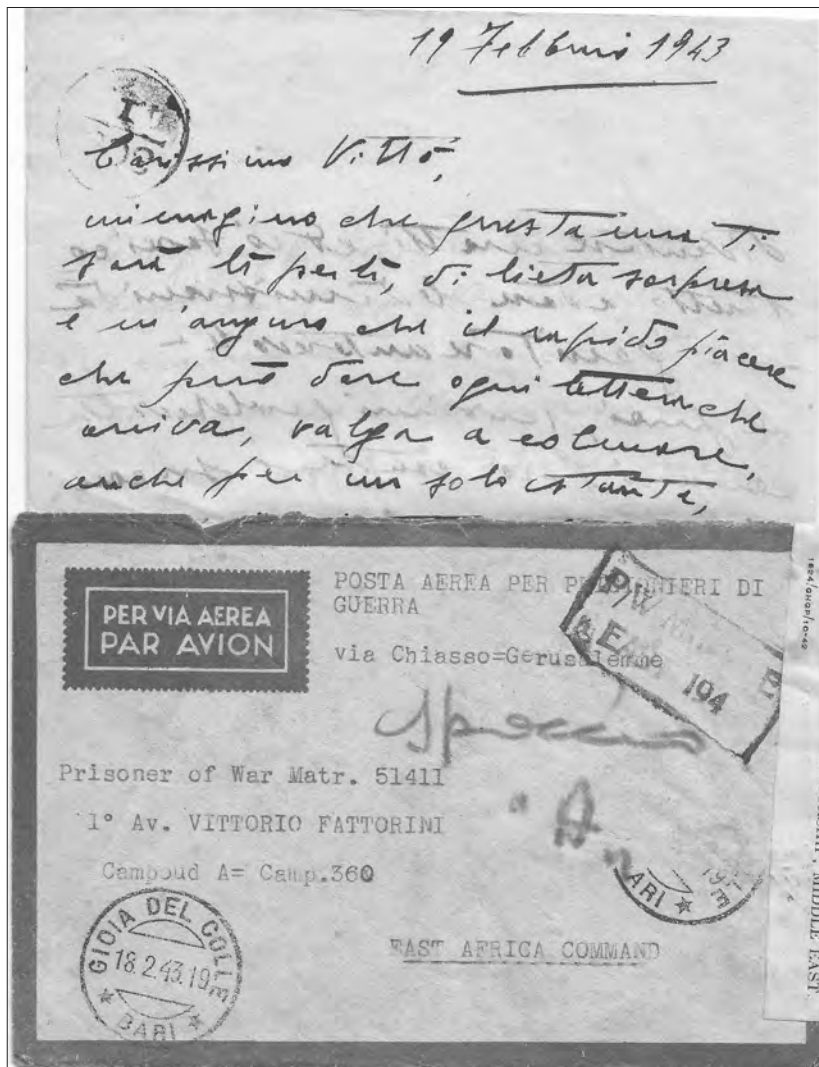 19 Febbraio 1943
Carissimo Vittò,
immagino che questa mia Ti
sarà lì per lì, di lieta sorpresa
e m'auguro che il rapido piacere
che può dare ogni lettera che
arriva, valga a colmare,
anche per un solo istante,
PER VIA AEREA
PAR AVION
POSTA AEREA PER PRIGIONIERI DI
GUERRA
via Chiasso=Gerusalemme
P/W
194
1624/GHQP/10-42
Prisoner of War Matr. 51411
1° Av. VITTORIO FATTORINI
Campoud A= Camp.360
"A"
EAST AFRICA COMMAND
GIOIA DEL COLLE
18.2.43.19E
* BARI *
BARI *
MIDDLE EAST